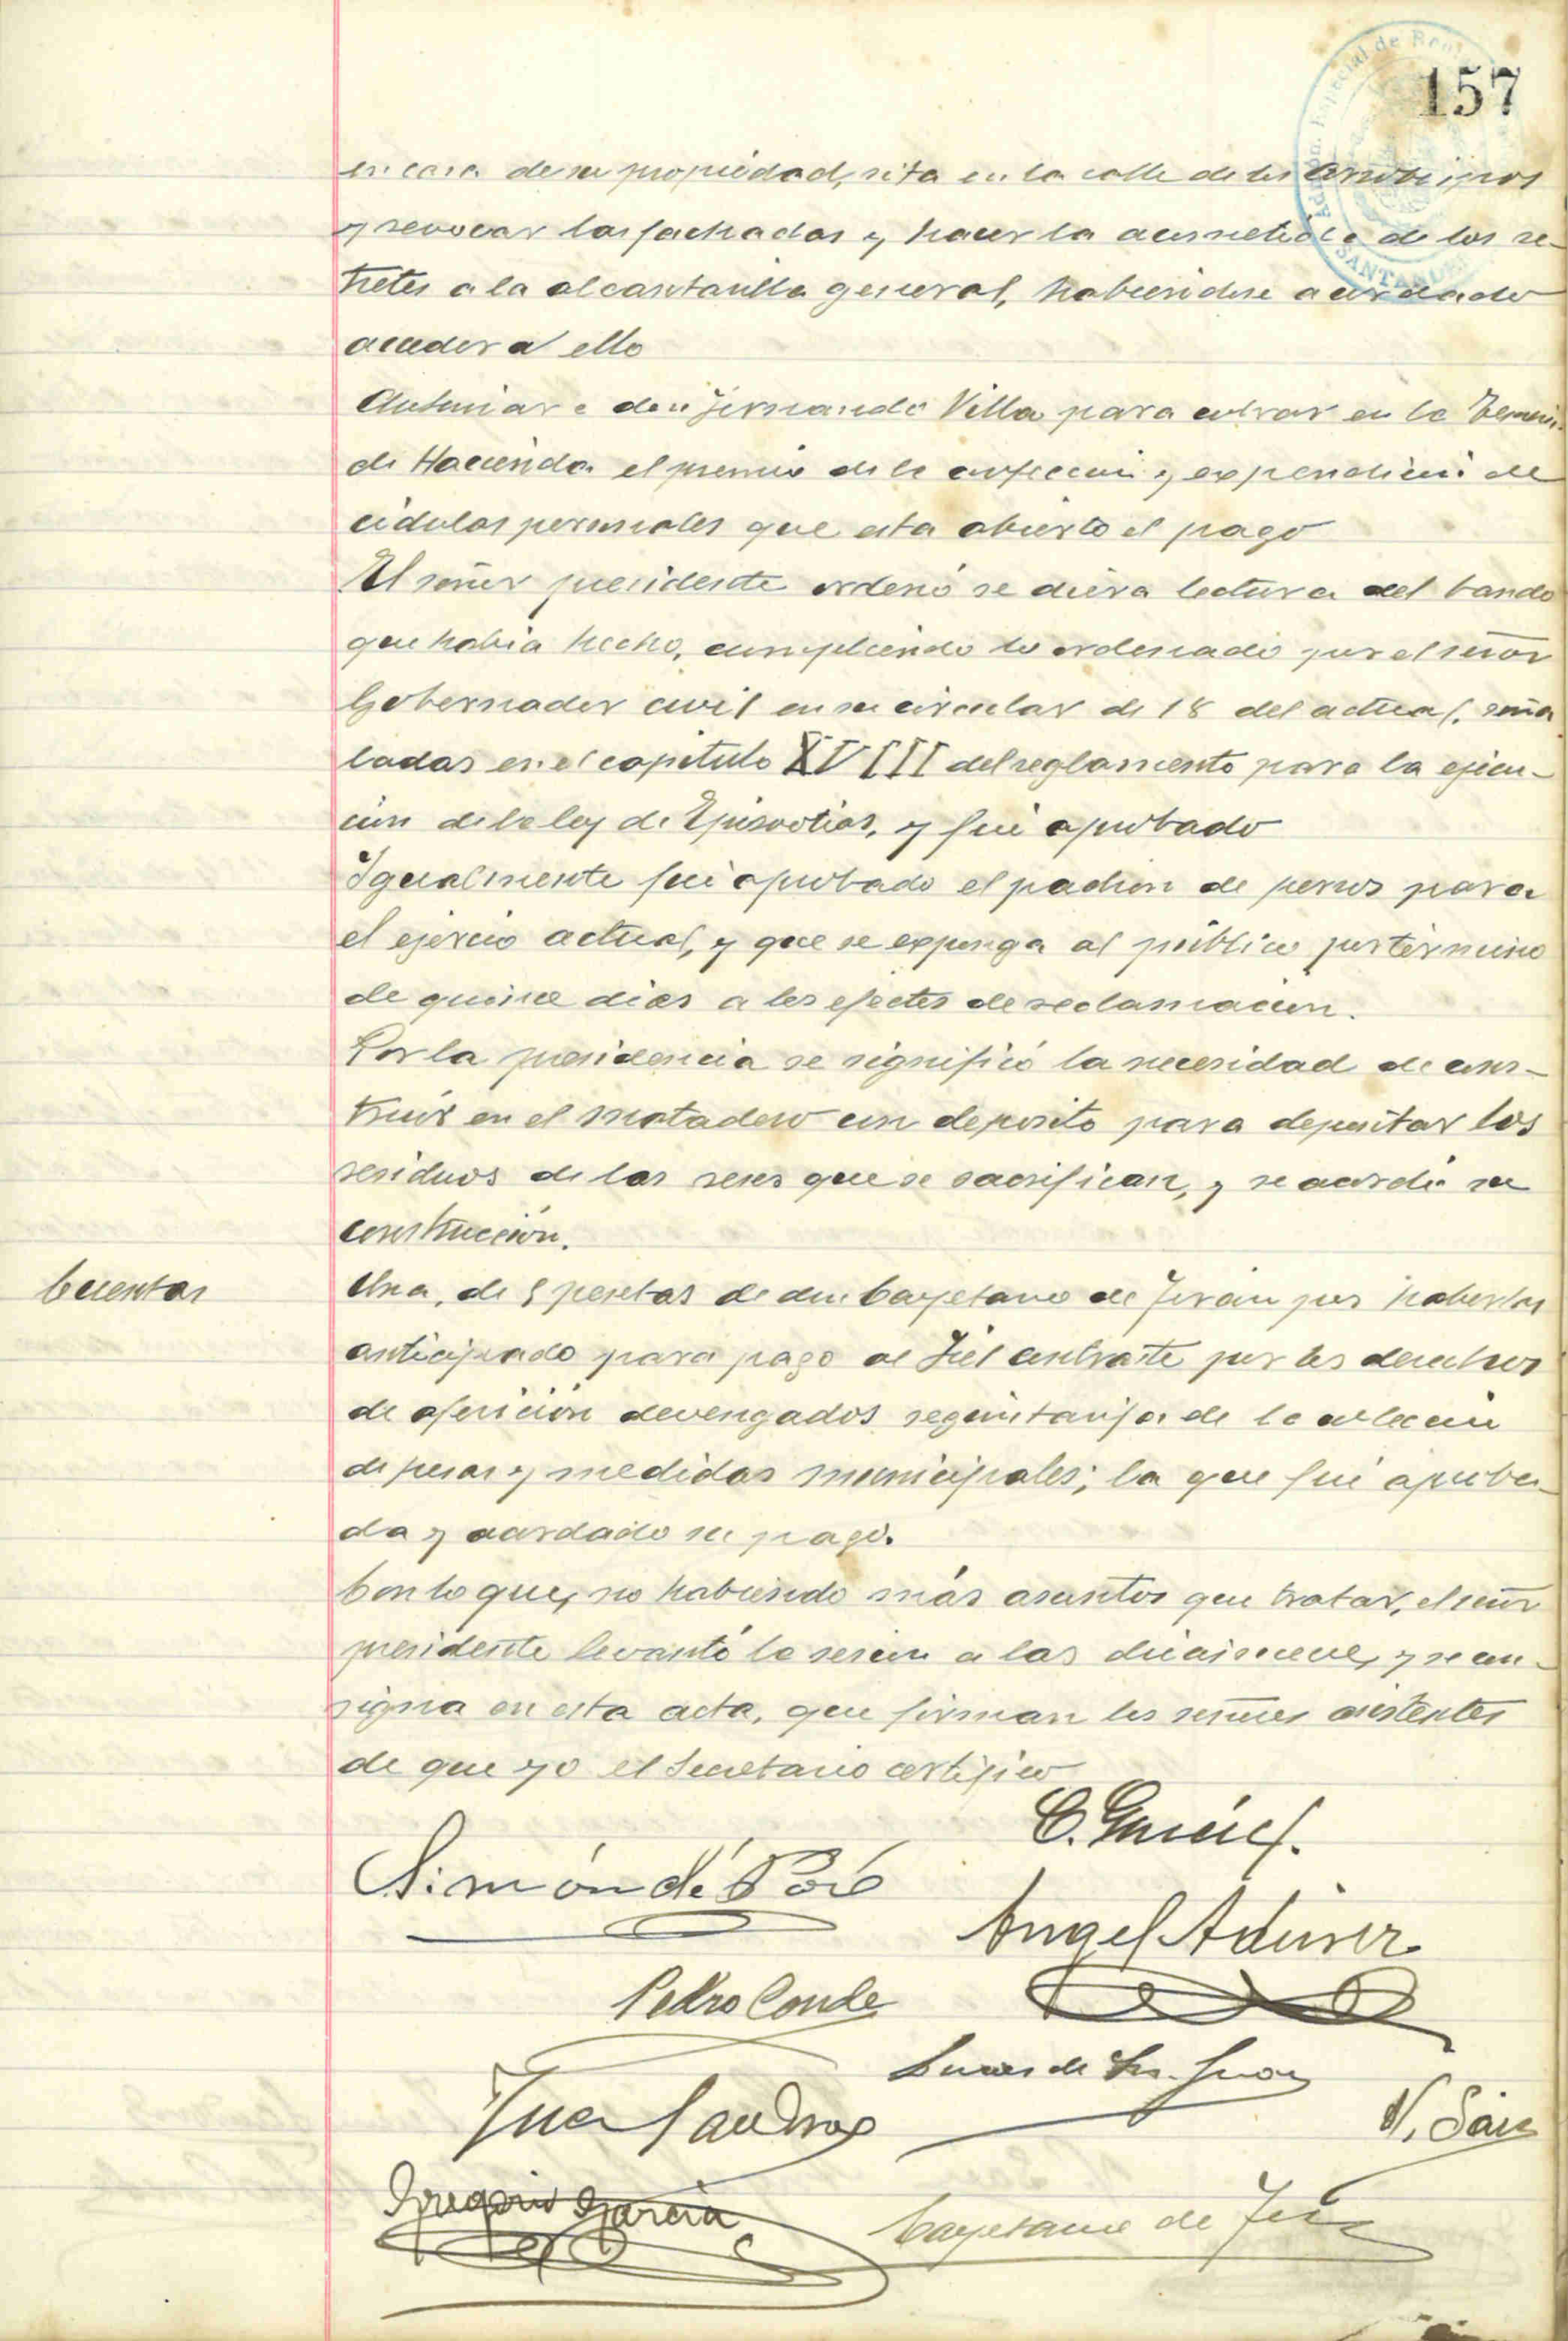 157
Admón. Especial de Rentas
SANTANDER
en casa de su propiedad, sita en la calle de los
y revocar las fachadas y hacer la acometida de los re-
tretes a la alcantarilla general, habiendose acordado
acceder a ello
Autorizar a don Fernando Villa para cobrar en la
de Hacienda el premio de la confección y expendición de
cédulas personales que esta abierto el pago
El señor presidente ordenó se diera lectura del bando
que habia hecho, cumpliendo lo ordenado por el señor
Gobernador civil en su circular de 18 del actual, seña
ladas en el capitulo XVIII del reglamento para la ejecu-
ción de la ley de Epizootias, y fué aprobado
Igualmente fué aprobado el padrón de perros para
el ejercio actual, y que se exponga al público por término
de quince dias a los efectos de reclamación.
Por la presidencia se significó la necesidad de cons-
truir en el matadero un deposito para depositar los
residuos de las reses que se sacrifican, y se acordó su
construcción.
Cuentas
Una, de 8 pesetas de don Cayetano de Terán por haberlas
anticipado para pago al Fiel contraste por los derechos
de aferición devengados según tarifa de la colección
de pesas y medidas municipales; la que fué aproba-
da y acordado su pago.
Con lo que, no habiendo más asuntos que tratar, el señor
presidente levantó la sesión a las diecinueve, y se con-
signa en esta acta, que firman los señores asistentes
de que yo el Secretario certifico
C.
Simón de
Angel
Pedro Conde
de
Juan
N. Saiz
Gregorio Garcia
Cayetano de Terán